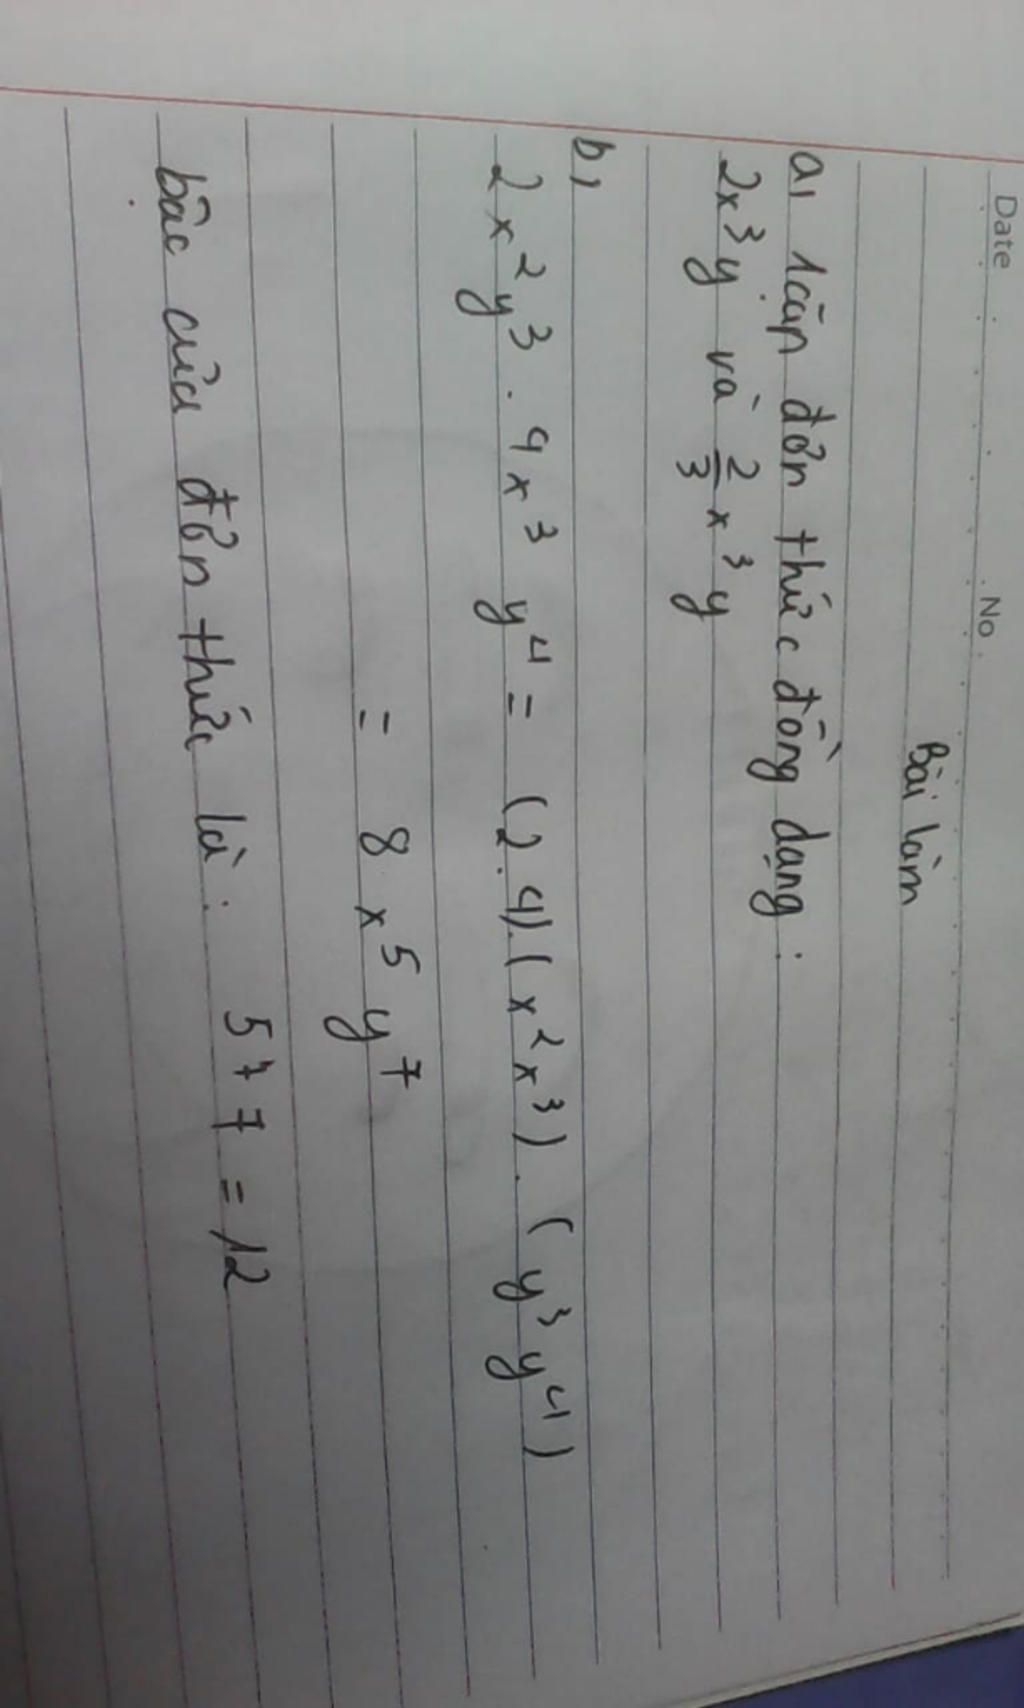 Date No.
Bài làm
a, 1 cặp đơn thức đồng dạng:
2x³y và 2/3 x³y
b,
2x²y³ . 4x³ y⁴ = (2.4).(x²x³).(y³y⁴)
= 8x⁵y⁷
bậc của đơn thức là: 5+7 = 12